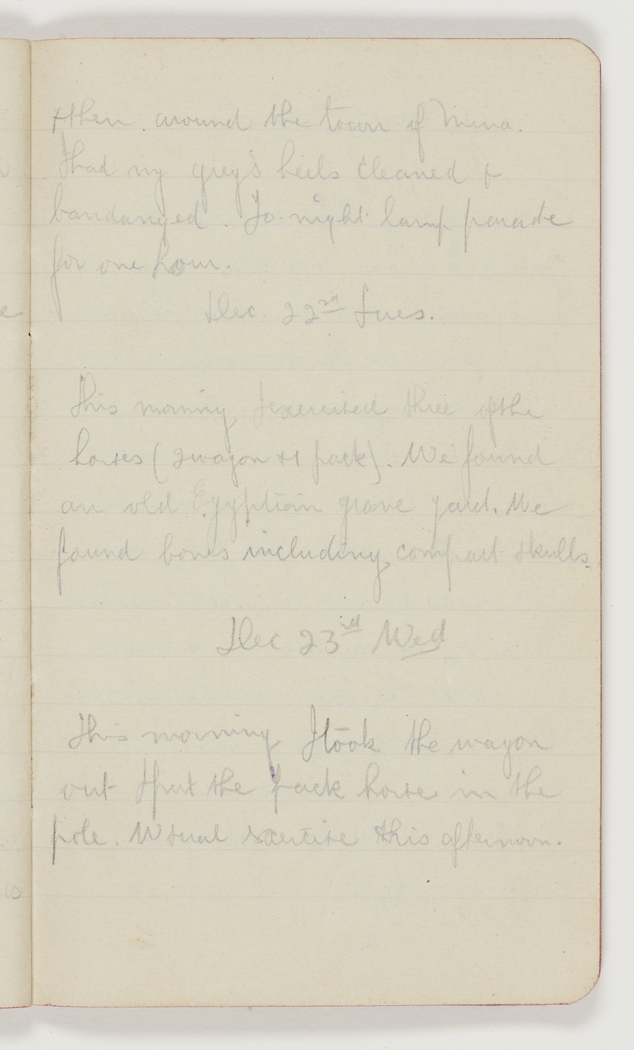 & then around the town of Mena.
I had my grey's heels cleaned &
bandanged. To-night lamp parade
for one hour.
Dec 22nd Tues.
This morning I exercised three of the
horses (2 wagon & 1 pack). We found
an old Egyptian grave yard. We
found bones including compact skulls.
Dec 23rd Wed
This morning I took the wagon
out I put the pack horse in the
pole. Usual exercise this afternoon.